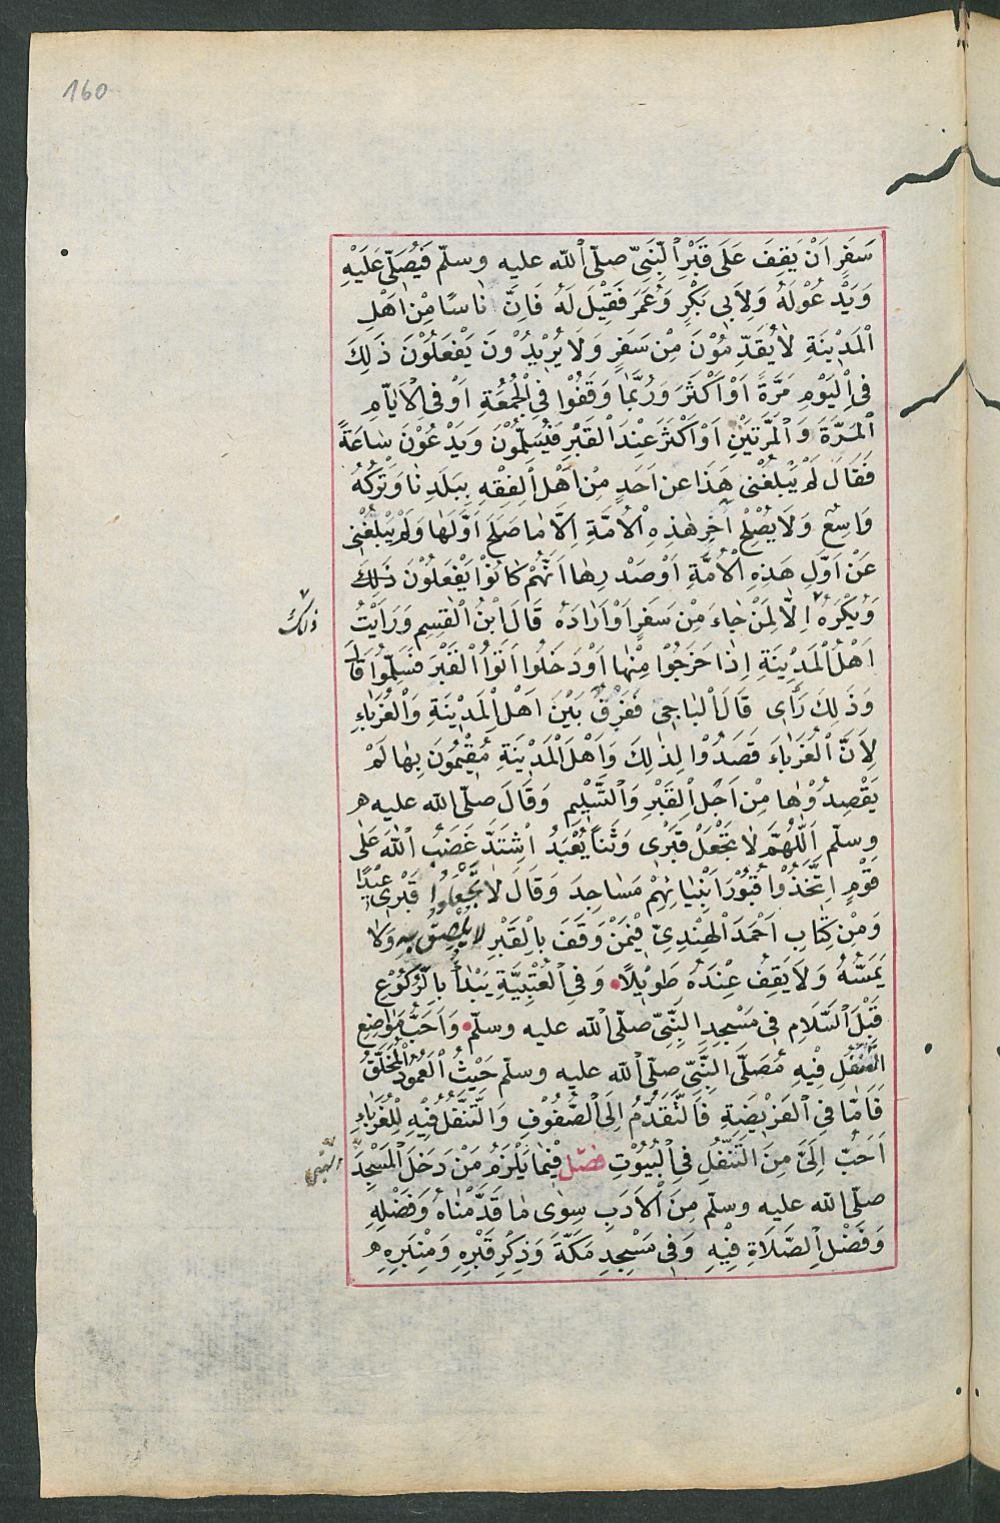 160
سَفَرٍ اَنْ يَقِفَ عَلَى قَبْرِ النَّبِيِّ صلّى الله عليه وسلّم فَيُصَلِّىَ عَلَيْهِ
وَيَدْعُوَ لَهُ وَلِاَبِى بَكْرٍ وَعُمَرَ فَقِيْلَ لَهُ فَاِنَّ نَاسًا مِنْ اَهْلِ
الْمَدِيْنَةِ لَا يُقَدِّمُوْنَ مِنْ سَفَرٍ وَلَا يُرِيْدُوْنَ يَفْعَلُوْنَ ذَلِكَ
فِى الْيَوْمِ مَرَّةً اَوْ اَكْثَرَ وَرُبَّمَا وَقَفُوْا فِى الْجُمُعَةِ اَوْ فِى الْاَيَّامِ
الْمَرَّةَ وَالْمَرَّتَيْنِ اَوْ اَكْثَرَ عِنْدَ الْقَبْرِ فَيُسَلِّمُوْنَ وَيَدْعُوْنَ سَاعَةً
فَقَالَ لَمْ يَبْلُغْنِى هَذَا عن اَحَدٍ مِنْ اَهْلِ الْفِقْهِ بِبَلَدِنَا وَتَرْكُهُ
وَاسِعٌ وَلَا يُصْلِحُ اٰخِرَ هٰذِهِ الْاُمَّةِ اِلَّا مَا صَلَحَ اَوَّلَهَا وَلَمْ يَبْلُغْنِى
عَنْ اَوَّلِ هَذِهِ الْاُمَّةِ اَوْ صَدْرِهَا اَنَّهُمْ كَانُوْا يَفْعَلُوْنَ ذٰلِكَ
وَيُكْرَهُ اِلَّا لِمَنْ جَاءَ مِنْ سَفَرٍ اَوْ اَرَادَهُ قَالَ ابْنُ الْقٰسِمِ وَرَاَيْتُ
ذلك
اَهْلَ الْمَدِيْنَةِ اِذَا خَرَجُوْا مِنْهَا اَوْ دَخَلُوا اَتَوُا الْقَبْرَ فَسَلَّمُوْا قَالَ
وَذَلِكَ رَأْى قَالَ الْبَاجِى فَفَرْقٌ بَيْنَ اَهْلِ الْمَدِيْنَةِ وَالْغُرَبَاءِ
لِاَنَّ الْغُرَبَاءَ قَصَدُوْا لِذٰلِكَ وَاَهْلَ الْمَدِيْنَةِ مُقِيْمُوْنَ بِهَا لَمْ
يَقْصِدُوْهَا مِنْ اَجْلِ الْقَبْرِ وَالتَّسْلِيْمِ وَقَالَ صلّى الله عليه
وسلّم اَللّٰهُمَّ لَا تَجْعَلْ قَبْرِى وَثَنًا يُعْبَدُ اِشْتَدَّ غَضَبُ اللهِ عَلَى
قَوْمٍ اِتَّخَذُوْا قُبُوْرَ اَنْبِيَائِهِمْ مَسَاجِدَ وَقَالَ لَا تَجْعَلُوا قَبْرِى عِيْدًا
وَمِنْ كِتَابِ اَحْمَدَ الْهِنْدِىِّ فِيْمَنْ وَقَفَ بِالْقَبْرِ لَا يَلْصِقُ بِهِ وَلَا
يَمَسُّهُ وَلَا يَقِفُ عِنْدَهُ طَوِيْلًا وَفِى الْعُتْبِيَّةِ يَبْدَأُ بِالرُّكُوْعِ
قَبْلَ السَّلَامِ فِى مَسْجِدِ النَّبِىِّ صلّى الله عليه وسلّم وَاَحَبُّ مَوَاضِعِ
التَّنَفُّلِ فِيْهِ مُصَلَّى النَّبِىِّ صلّى الله عليه وسلّم حَيْثُ الْعَمُوْدُ الْمُخَلَّقُ
فَاَمَّا فِى الْفَرِيْضَةِ فَالتَّقَدُّمُ اِلَى الصُّفُوْفِ وَالتَّنَفُّلُ فِيْهِ لِلْغُرَبَاءِ
اَحَبُّ اِلَىَّ مِنَ التَّنَفُّلِ فِى الْبُيُوْتِ فصْل فِيْمَا يَلْزَمُ مَنْ دَخَلَ الْمَسْجِدَ
النّبى
صلّى الله عليه وسلّم مِنَ الْاَدَبِ سِوٰى مَا قَدَّمْنَاهُ وَفَضْلِهِ
وَفَضْلِ الصَّلَاةِ فِيْهِ وَفِى مَسْجِدِ مَكَّةَ وَذِكْرِ قَبْرِهِ وَمِنْبَرِهِ